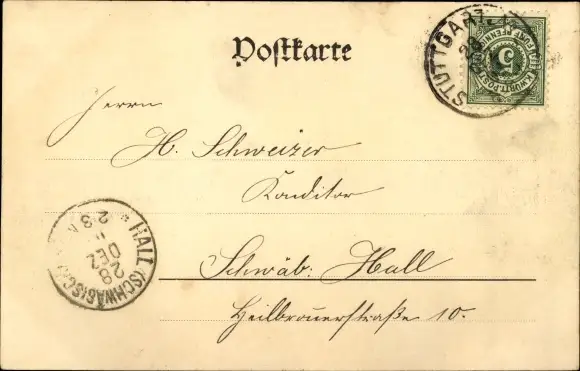 Postkarte
STUTTGART
28
K. WÜRTT. POST
FÜNF PFENNIG
5
Herrn
H. Schweizer
Konditor
Schwäb. Hall
Heilbronerstraße 10.
HALL (SCHWÄBISCH)
28
DEZ
2-3 N